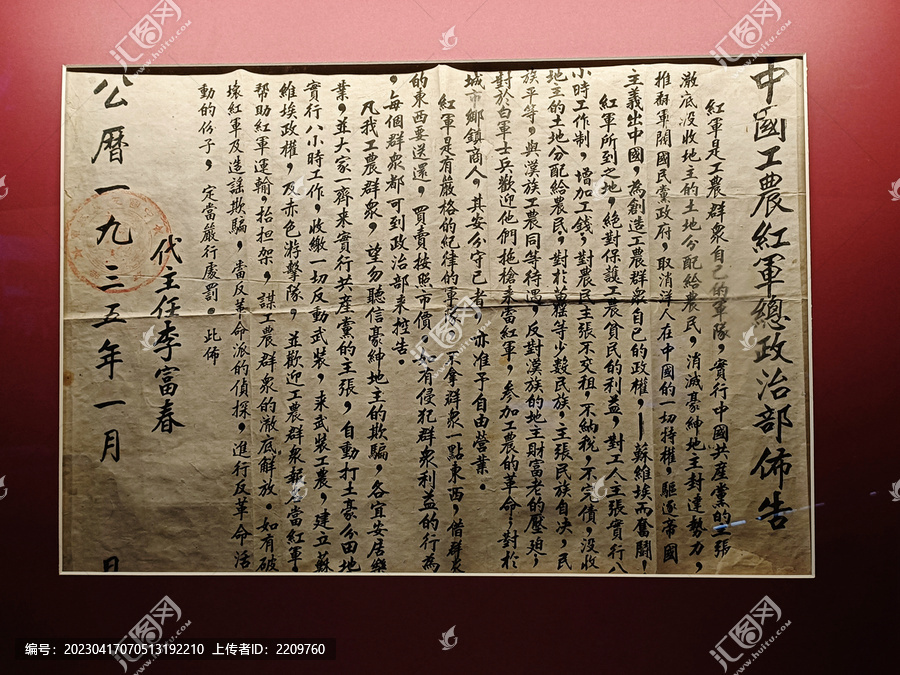 中國工農紅軍總政治部佈告
紅軍是工農群眾自己的軍隊，實行中國共産黨的主張
澈底没收地主的土地分配給農民，消滅豪紳地主封建勢力，
推翻軍閥國民黨政府，取消洋人在中國的一切特權，驅逐帝國
主義出中國，為創造工農群眾自已的政權，——蘇維埃而奮鬪，
紅軍所到之地，絕對保護工農貧民的利益，對工人主張實行八
小時工作制，增加工錢，對農民主張不交租，不納税，不完債，没收
地主的土地分配給農民，對於苗猺等少數民族，主張民族自决，民
族平等，與漢族工農同等待遇，反對漢族的地主財富老的壓迫，
對於白軍士兵歡迎他們拖槍來當紅軍，參加工農的革命，對於
城市鄉鎮商人，其安分守己者，亦准予自由營業。
紅軍是有嚴格的紀律的軍隊，不拿群眾一點東西，借群衆
的東西要送還，買賣按照市價，如有侵犯群眾利益的行為
，每個群衆都可到政治部來控告。
凡我工農群衆，望勿聽信豪紳地主的欺騙，各宜安居樂
業，並大家一齊來實行共産黨的主張，自動打土豪分田地
實行八小時工作，收繳一切反動武裝，來武裝工農，建立蘇
維埃政權，及赤色游擊隊，並歡迎工農群衆報名當紅軍，
帮助紅軍運輸，抬担架，謀工農群衆的澈底解放。如有破
壊紅軍及造謡欺騙，當反革命派的偵探，進行反革命活
動的份子，定當嚴行處罰。此佈
代主任李富春
公曆一九三五年一月 日
编号：20230417070513192210 上传者ID：2209760
汇图网
www.huitu.com